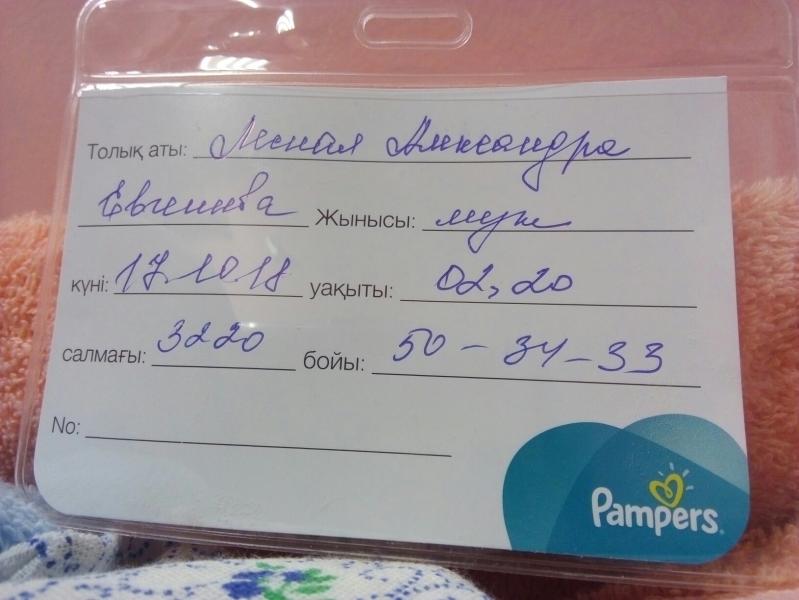 Толық аты: Лесная Александра
Евгеньевна Жынысы: муж
күні: 17.10.18 уақыты: 02,20
салмағы: 3220 бойы: 50 – 34 – 33
No:
Pampers